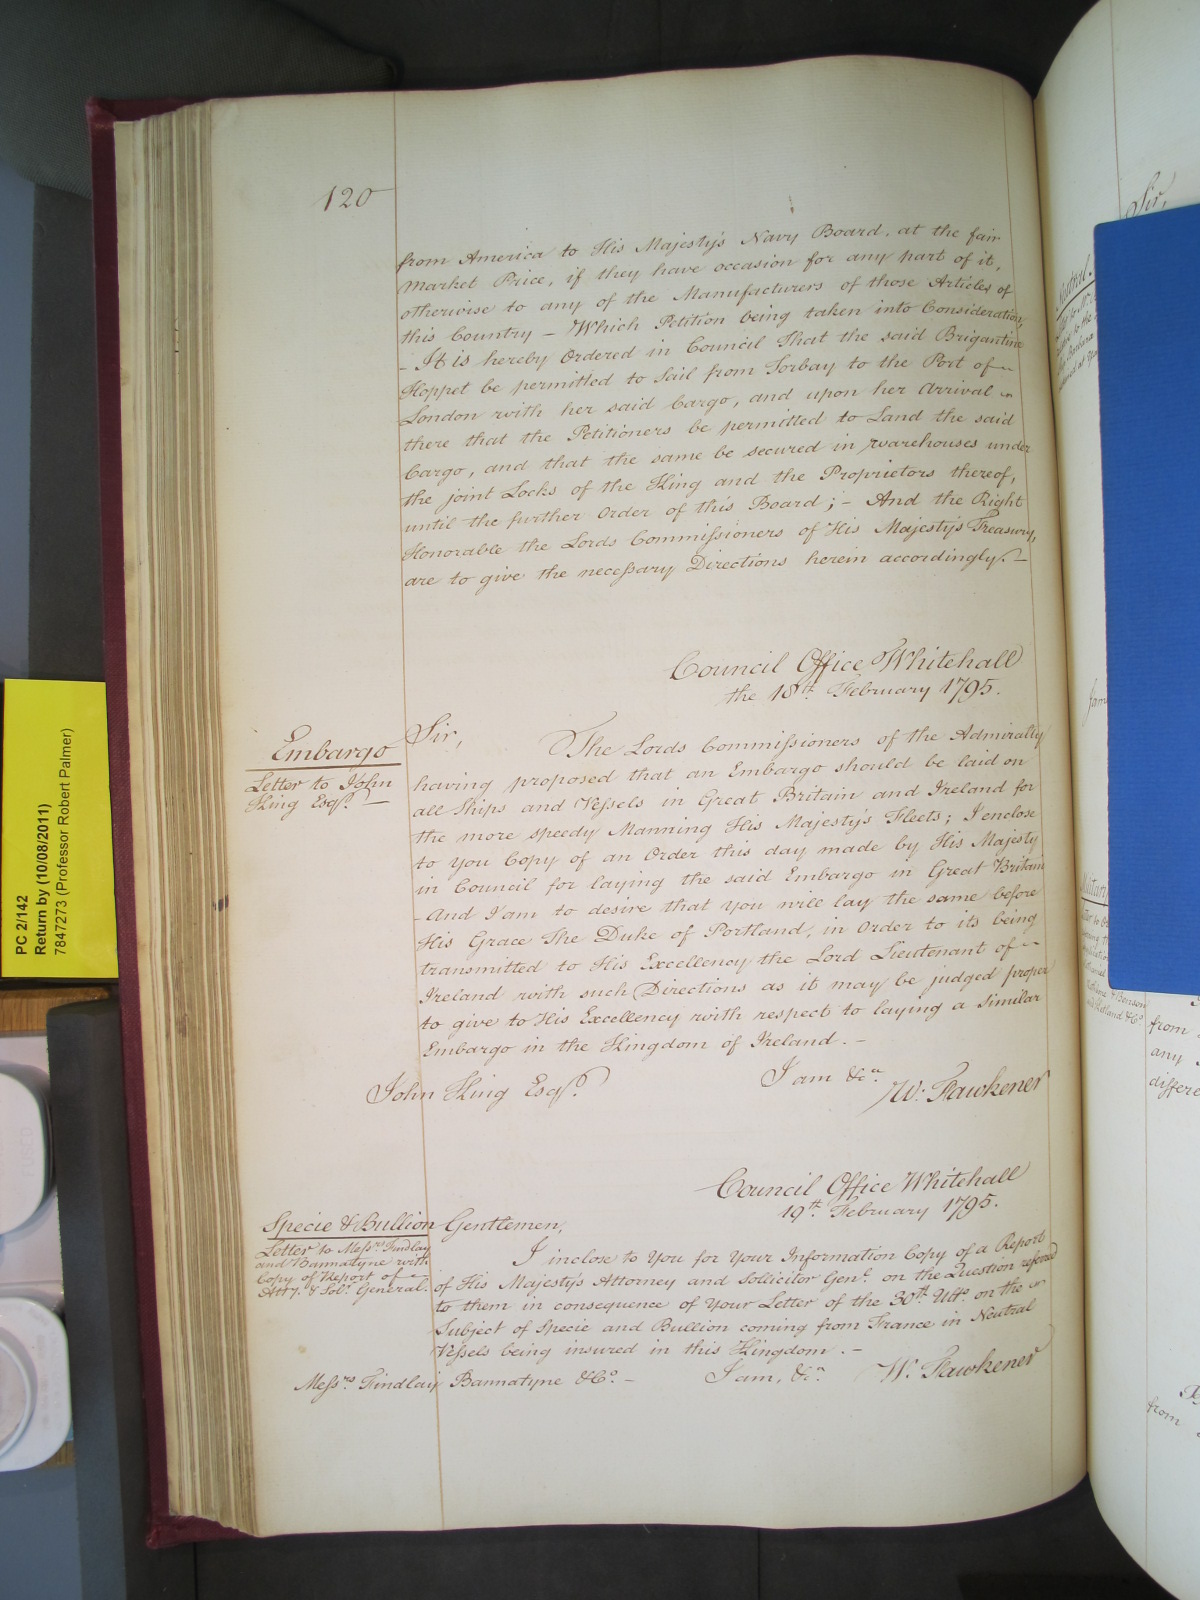 120
from America to His Majesty's Navy Board, at the fair
Market Price, if they have occasion for any part of it,
otherwise to any of the Manufacturers of those Articles of
this Country – Which Petition being taken into Consideration,
– It is hereby Ordered in Council That the said Brigantine
Hoppet be permitted to Sail from Torbay to the Port of
London with her said Cargo, and upon her Arrival
there that the Petitioners be permitted to Land the said
Cargo, and that the same be secured in Warehouses under
the joint Locks of the King and the Proprietors thereof,
until the further Order of this Board; – And the Right
Honorable the Lords Commissioners of His Majesty's Treasury,
are to give the necessary Directions herein accordingly. –
Council Office Whitehall
the 18th. February 1795.
Embargo
Letter to John
King Esqr. –
Sir,
The Lords Commissioners of the Admiralty
having proposed that an Embargo should be laid on
all Ships and Vessels in Great Britain and Ireland for
the more speedy Manning His Majesty's Fleets; I enclose
to you Copy of an Order this day made by His Majesty
in Council for laying the said Embargo in Great Britain
– And I am to desire that you will lay the same before
His Grace The Duke of Portland, in Order to its being
transmitted to His Excellency the Lord Lieutenant of
Ireland with such Directions as it may be judged proper
to give to His Excellency with respect to laying a similar
Embargo in the Kingdom of Ireland. –
I am &ca.
John King Esqr.
W. Fawkener
Council Office Whitehall
19th. February 1795.
Specie & Bullion
Letter to Messrs. Findlay
and Bannatyne with
Copy of Report of
Atty. & Solr. General.
Gentlemen,
I inclose to You for Your Information Copy of a Report
of His Majesty's Attorney and Sollicitor Genl. on the Question referred
to them in consequence of Your Letter of the 30th. Ulto. on the
Subject of Specie and Bullion coming from France in Neutral
Vessels being insured in this Kingdom. –
I am, &ca.
W. Fawkener
Messrs. Findlay Bannatyne & Co. –
PC 2/142
Return by (10/08/2011)
7847273 (Professor Robert Palmer)
Sir,
from
any
differe
from